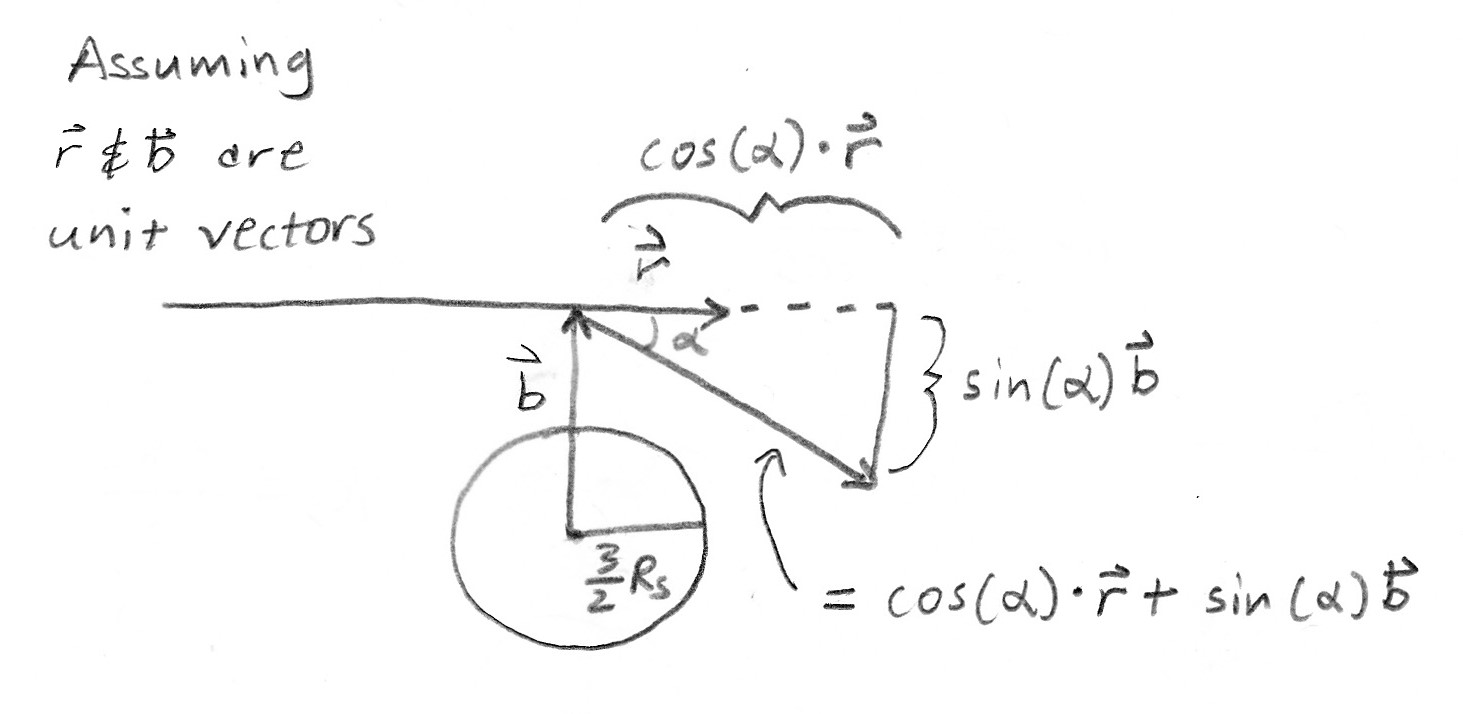 Assuming
r⃗ & b⃗ are
unit vectors
cos(α)·r⃗
r⃗
α
b⃗
sin(α) b⃗
3/2 Rs
= cos(α)·r⃗ + sin(α) b⃗